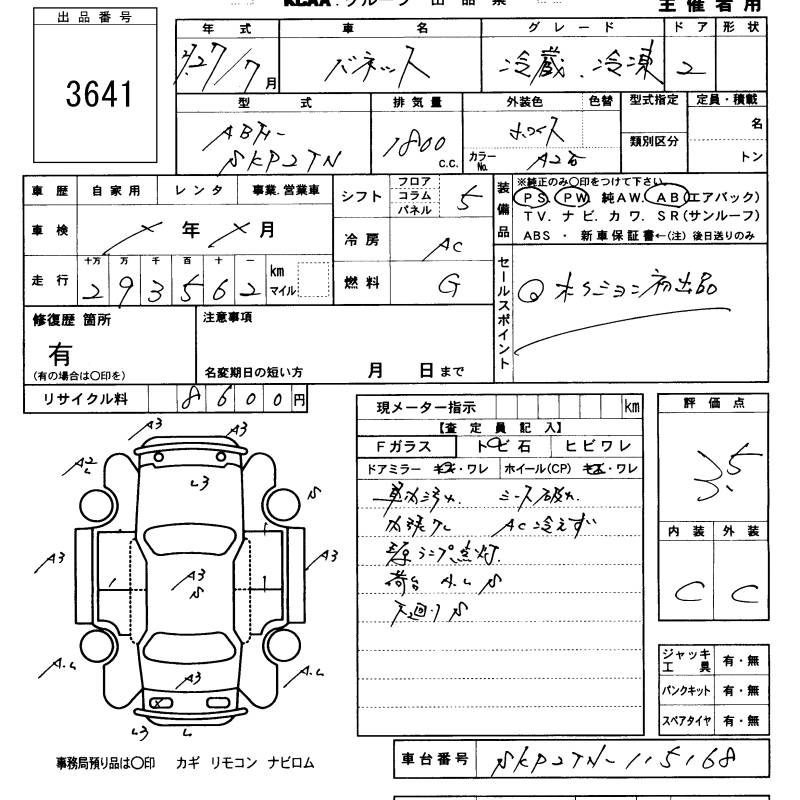 KCAA グループ 出品票
主催者用
出品番号
3641
年式 車名 グレード ドア 形状
27/7月 バネット 冷蔵.冷凍 2
型式 排気量 外装色 色替 型式指定 定員・積載
ABF-
SKP2TN 1800 c.c. ホワイト 名
カラーNo. 類別区分 トン
車歴 自家用 レンタ 事業.営業車
車検 年 月
走行 十万 万 千 百 十 一
293562 km マイル
シフト フロア コラム パネル 5
冷房 AC
燃料 G
装備品
※純正のみ〇印をつけて下さい。
PS. PW. 純AW. AB(エアバック)
TV. ナビ. カワ. SR(サンルーフ)
ABS ・ 新車保証書←(注) 後日送りのみ
セールスポイント
初出品
修復歴 箇所
有
(有の場合は〇印を)
注意事項
名変期日の短い方 月 日まで
リサイクル料 8600円
現メーター指示 km
【査定員記入】
Fガラス トビ石 ヒビワレ
ドアミラー キズ・ワレ ホイール(CP) キズ・ワレ
車内汚れ シート破れ
AC冷えず
ランプ点灯
荷台 A.L S
下廻りS
評価点
3.5
内装 外装
C C
ジャッキ工具 有・無
パンクキット 有・無
スペアタイヤ 有・無
A3 A3
A2 L3 S
A3 A3 A3
S
A.L A3 A.L
X
L3 L
事務局預り品は〇印 カギ リモコン ナビロム
車台番号 SKP2TN-115168